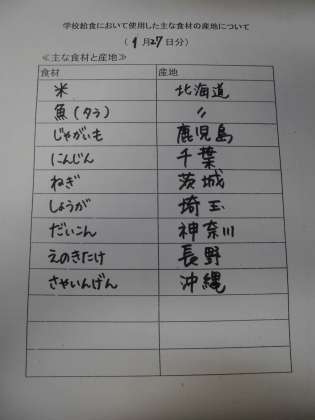 学校給食において使用した主な食材の産地について
（1月27日分）
≪主な食材と産地≫
食材 産地
米 北海道
魚（タラ） 〃
じゃがいも 鹿児島
にんじん 千葉
ねぎ 茨城
しょうが 埼玉
だいこん 神奈川
えのきたけ 長野
さやいんげん 沖縄